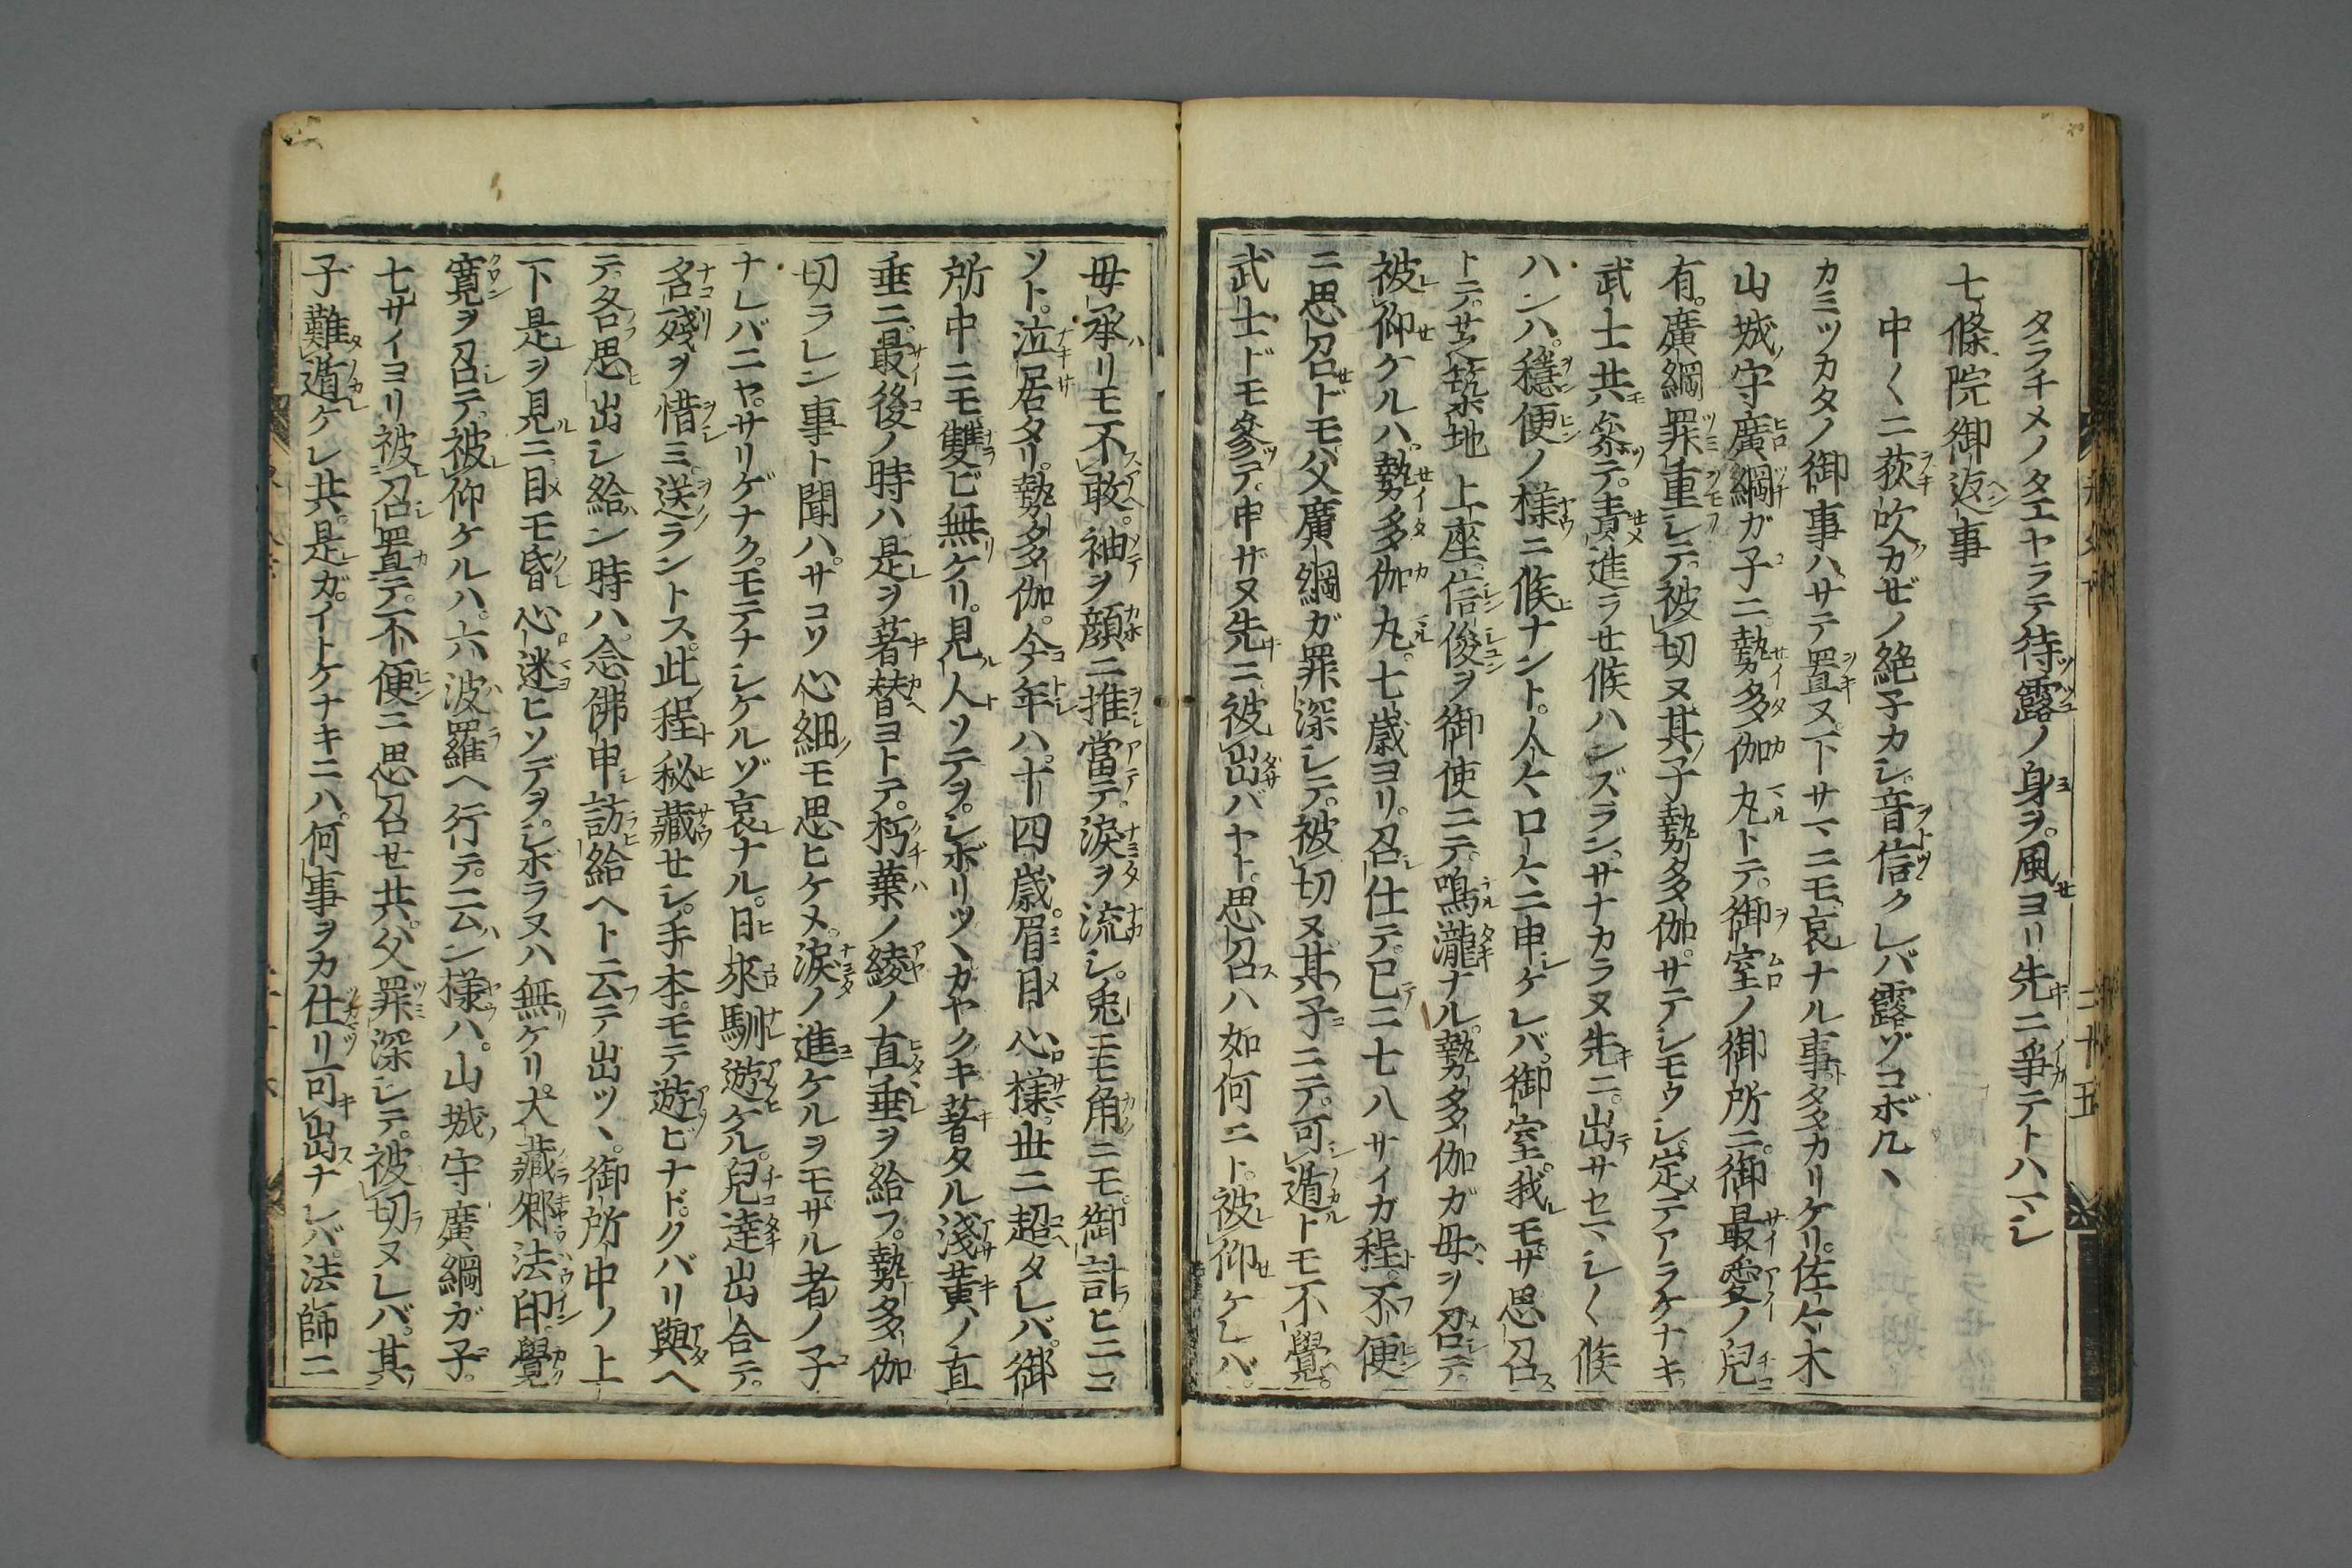 タラチメノタエヤラテ待露ノ身ヲ。風ヨリ先ニ爭テトハマシ
七條院御返事
中〱ニ荻吹カゼノ絶子カシ。音信クレバ露ゾコボルヽ
カミツカタノ御事ハ。サテ置ヌ。下サマニモ哀ナル事多カリケリ。佐々木
山城守廣綱ガ子ニ。勢多伽丸トテ。御室ノ御所ニ。御最愛ノ兒
有。廣綱罪重シテ。被切ヌ。其子勢多伽。サテシモウシ。定テアラケナキ
武士共參テ。責進ラセ候ハンズラン。サナカラヌ先ニ。出サセマシ〱候
ハンハ。穩便ノ樣ニ候ナント。人々口々ニ申ケレバ。御室。我モサ思召
トテ。芝築地上座。信俊ヲ御使ニテ。鳴瀧ナル。勢多伽ガ母ヲ召テ。
被仰ケルハ。勢多伽丸。七歲ヨリ。召仕テ。已ニ七八サイガ程。不便
ニ思召ドモ。父廣綱ガ罪深シテ。被切ヌ。其子ニテ。可遁トモ不覺。
武士ドモ參テ。申ザヌ先ニ被出バヤト。思召ハ如何ニト。被仰ケレバ。
母承リモ不敢。袖ヲ顏ニ推當テ。淚ヲ流シ。兎ニモ角ニモ。御計ヒニコ
ソト。泣居タリ。勢多伽。今年ハ。十四歲。眉目心樣。世ニ超タレバ。御
所中ニモ雙ビ無ケリ。見人ソテヲ。シボリツヽ。カヤクキ著タル淺黃ノ直
垂ニ。最後ノ時ハ是ヲ著替ヨトテ。朽葉ノ綾ノ直垂ヲ給フ。勢多伽
切ラレン事ト聞ハ。サコソ心細モ思ヒケメ。淚ノ進ケルヲモ。サル者ノ子
ナレバニヤ。サリゲナク。モテナシケルゾ哀ナル。日來馴遊ケル。兒達出合テ。
名殘ヲ惜ミ。送ラントス。此程秘藏セシ。手本。モテ遊ビナド。クバリ與ヘ
テ。各思出シ給ン時ハ。念佛申訪給ヘト云テ出ツヽ。御所中ノ上
下是ヲ見ニ。目モ昏心迷ヒ。ソデヲ。シボラヌハ無ケリ。大藏卿法印。覺
寬ヲ召テ。被仰ケルハ。六波羅ヘ行テ。云ムン樣ハ。山城守廣綱ガ子。
七サイヨリ被召置テ。不便ニ思召セ共。父罪深シテ。被切ヌレバ。其
子難遁ケレ共。是ガ。イトケナキニハ。何事ヲカ仕リ可出ナレバ。法師ニ